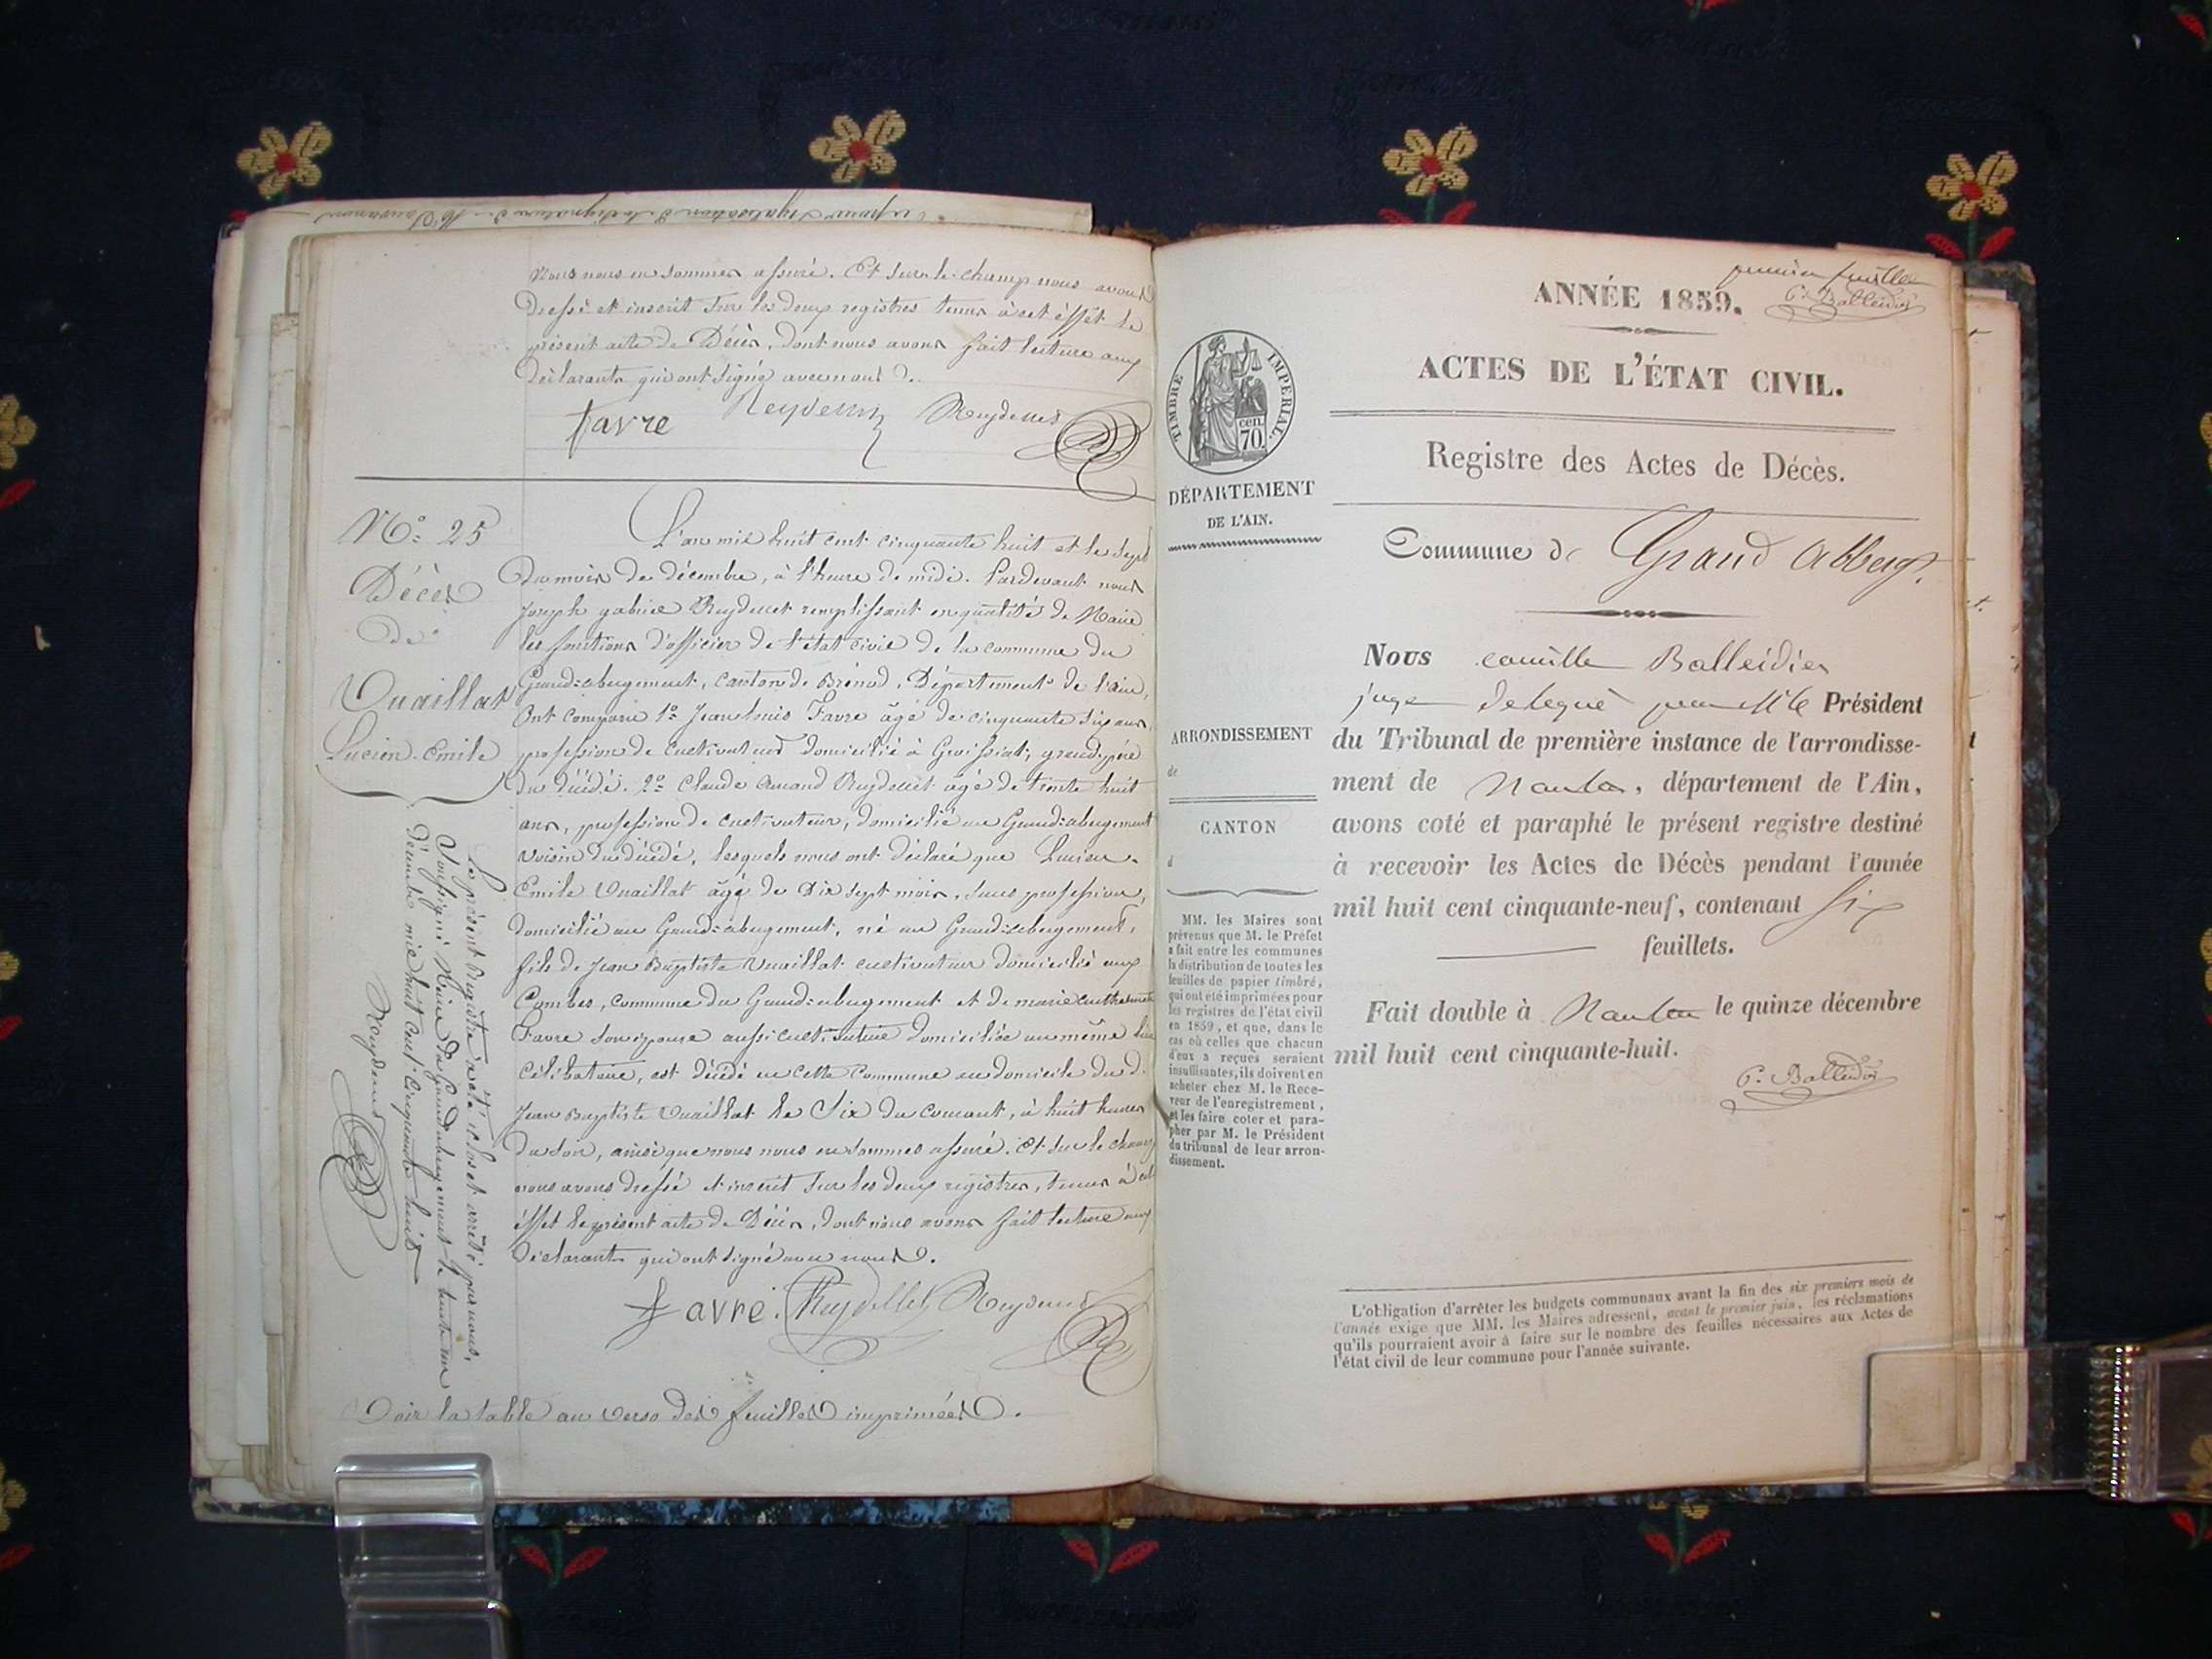 nous nous en sommes assuré. Et sur le champ nous avons
dressé et inscrit sur les deux registres tenus à cet éffét le
présent acte de Décès, dont nous avons fait lecture aux
déclarants qui ont signé avec nous.
favre Reydellet Reydellet
N.° 25
Décès
de
Vuaillat
Lucien Emile
L'an mil huit cent cinquante huit et le sept
du mois de décembre, à l'heure de midi. Pardevant nous
joseph gabriel Reydellet remplissant en qualité de Maire
les fonctions d'officier de l'état civil de la commune du
Grand-abergement, canton de Brénod, Département de l'ain,
Ont comparu 1.° Jean louis Favre âgé de cinquante six ans,
profession de cultivateur domicilié à Gevissiat, grand-père
du décédé. 2.° Claude Amand Reydellet âgé de trente huit
ans, profession de cultivateur, domicilié au Grand-abergement
voisin du décédé, lesquels nous ont déclaré que Lucien
Emile Vuaillat âgé de Dix sept mois, sans profession,
domicilié au Grand-abergement, né au Grand-abergement,
fils de Jean Baptiste Vuaillat cultivateur domicilié aux
Combes, commune du Grand-abergement et de marie
Favre son épouse aussi cultivatrice domiciliée au même lieu
célibataire, est décédé en cette Commune au domicile du d.
Jean Baptiste Vuaillat le Six du courant, à huit heures
du soir, ainsi que nous nous en sommes assuré. Et sur le champ
nous avons dressé et inscrit sur les deux registres, tenus à cet
éffet le présent acte de Décès, dont nous avons fait lecture aux
déclarants qui ont signé avec nous.
favre. Reydellet Reydellet
Le présent Registre a été clos et arrêté par nous,
Soussigné Maire du Grand abergement le trente un
décembre mil huit cent cinquante huit
Reydellet
Voir la table au verso des feuilles imprimées.
premier feuillet
C. Balleidier
ANNÉE 1859.
ACTES DE L'ÉTAT CIVIL.
Registre des Actes de Décès.
TIMBRE IMPÉRIAL.
cen.
70.
DÉPARTEMENT
DE L'AIN.
ARRONDISSEMENT
de
CANTON
d
MM. les Maires sont
prévenus que M. le Préfet
a fait entre les communes
la distribution de toutes les
feuilles de papier timbré,
qui ont été imprimées pour
les registres de l'état civil
en 1859, et que, dans le
cas où celles que chacun
d'eux a reçues seraient
insuffisantes, ils doivent en
acheter chez M. le Rece-
veur de l'enregistrement,
et les faire coter et para-
pher par M. le Président
du tribunal de leur arron-
dissement.
Commune de Grand Abberg.
Nous camille Balleidier
juge delegué par Mr le Président
du Tribunal de première instance de l'arrondisse-
ment de Nantua, département de l'Ain,
avons coté et paraphé le présent registre destiné
à recevoir les Actes de Décès pendant l'année
mil huit cent cinquante-neuf, contenant six
feuillets.
Fait double à Nantua le quinze décembre
mil huit cent cinquante-huit.
C. Balleidier
L'obligation d'arrêter les budgets communaux avant la fin des six premiers mois de
l'année exige que MM. les Maires adressent, avant le premier juin, les réclamations
qu'ils pourraient avoir à faire sur le nombre des feuilles nécessaires aux Actes de
l'état civil de leur commune pour l'année suivante.